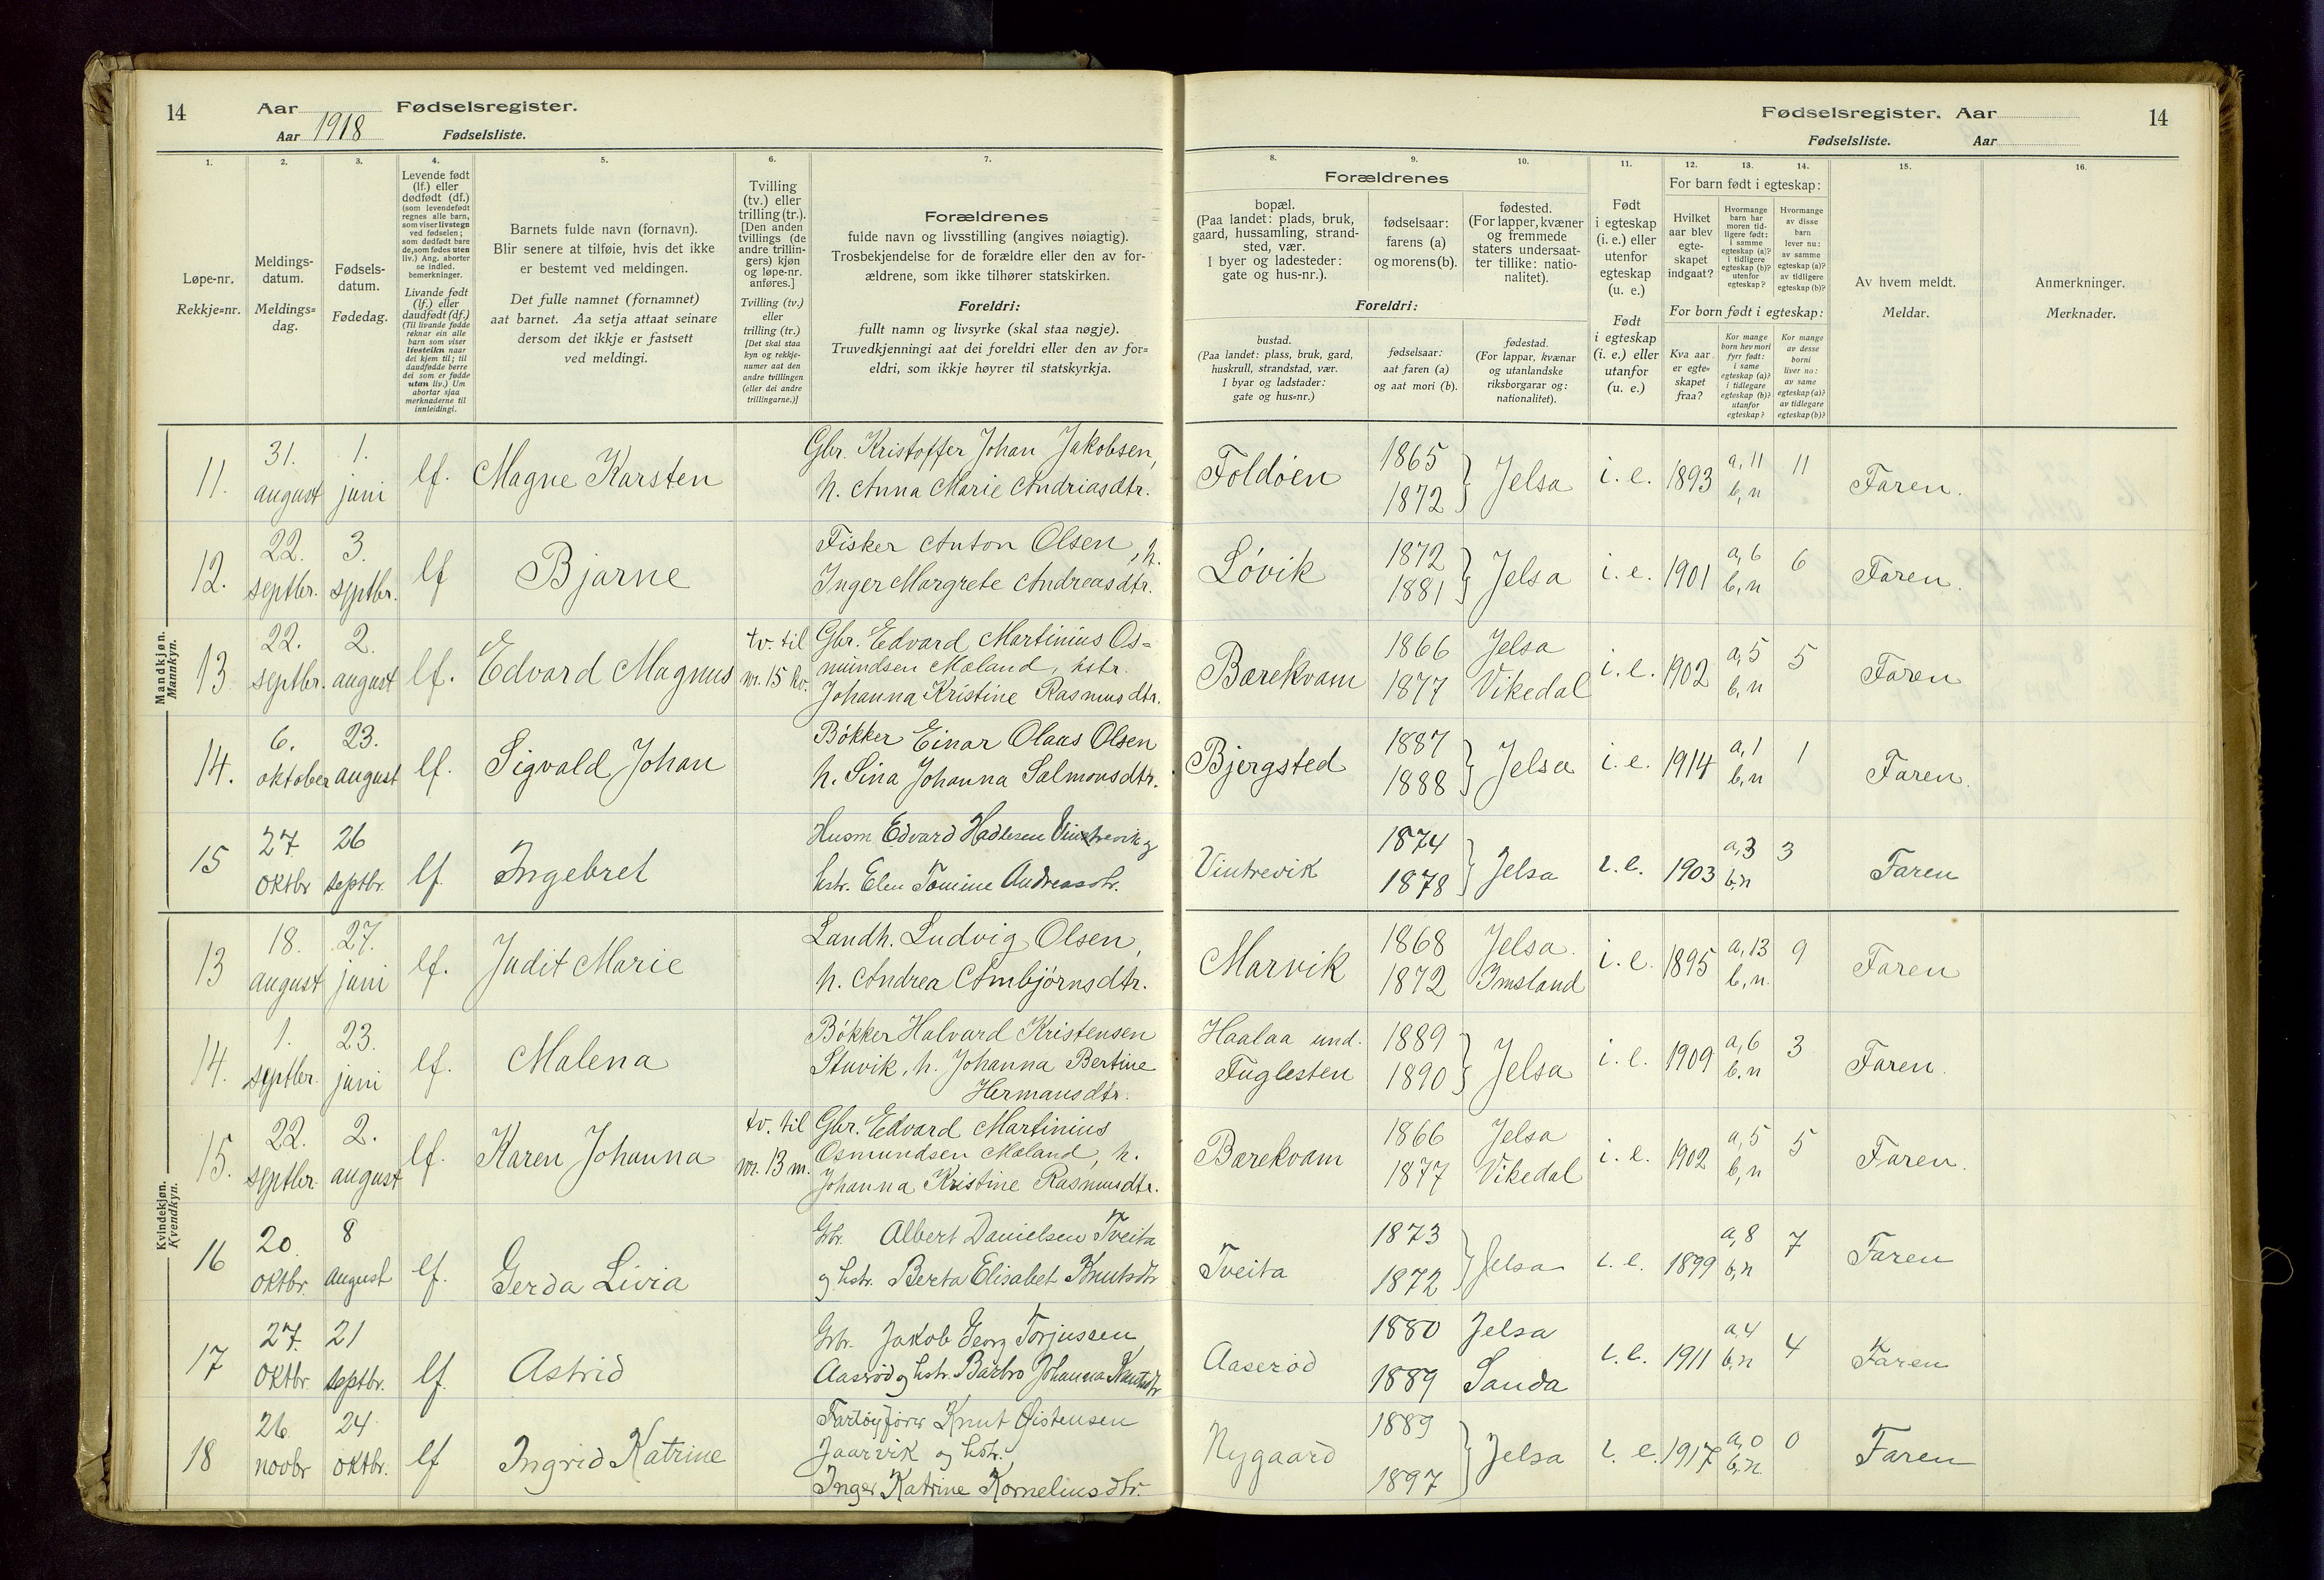 14
Aar
Fødselsregister.
Aar 1918
Fødselsliste.
1.
2.
3.
4.
5.
6.
7.
Løpe-nr.
Rekkje=nr.
Meldings-
datum.
Meldings=
dag.
Fødsels-
datum.
Fødedag.
Levende født
(lf.) eller
dødfødt (df.)
(som levendefødt
regnes alle barn,
som viser livstegn
ved fødselen;
som dødfødt bare
de, som fødes uten
liv.) Ang. aborter
se indled.
bemerkninger.
Livande født
(lf.) eller
daudfødt (df.)
(Til livande fødde
reknar ein alle
barn som viser
livsteikn naar
dei kjem til; til
daudfødde berre
dei som er fødde
utan liv.) Um
abortar sjaa
merknaderne til
innleidingi.
Barnets fulde navn (fornavn).
Blir senere at tilføie, hvis det ikke
er bestemt ved meldingen.
Det fulle namnet (fornamnet)
aat barnet. Aa setja attaat seinare
dersom det ikkje er fastsett
ved meldingi.
Tvilling
(tv.) eller
trilling (tr.).
[Den anden
tvillings (de
andre trillin-
gers) kjøn
og løpe-nr.
anføres.]
Tvilling (tv.)
eller
trilling (tr.)
[Det skal staa
kyn og rekkje-
numer aat den
andre tvillingen
(eller dei andre
trillingarne.)]
Forældrenes
fulde navn og livsstilling (angives nøiagtig).
Trosbekjendelse for de forældre eller den av for-
ældrene, som ikke tilhører statskirken.
Foreldri:
fullt namn og livsyrke (skal staa nøgje).
Truvedkjenningi aat dei foreldri eller den av for=
eldri, som ikkje høyrer til statskyrkja.
Mandkjøn.
Mannkyn.
11.
31.
august
1.
juni
lf.
Magne Karsten
Gbr. Kristoffer Johan Jakobsen,
h. Anna Marie Andriasdtr.
12.
22.
septbr.
3.
septbr.
lf
Bjarne
Fisker Anton Olsen, h.
Inger Margrete Andreasdtr.
13
22.
septbr.
2.
august
lf.
Edvard Magnus
tv. til
nr. 15 kv.
Gbr. Edvard Martinius Os=
mundsen Mæland, hstr.
Johanna Kristine Rasmusdtr.
14.
6.
oktober
23.
august
lf.
Sigvald Johan
Bökker Einar Olaus Olsen
h. Sina Johanna Salmonsdtr.
15
27
oktbr
26
septbr.
lf
Ingebret
Husm Edvard Hadlesen Vintrevik og
hstr. Elen Tomine Andreasdtr.
Kvindekjøn.
Kvendkyn.
13
18.
august
27.
juni
lf.
Judit Marie
Landh. Ludvig Olsen,
h. Andrea Ambjørnsdtr.
14.
1.
septbr.
23.
juni
lf.
Malena
Bökker Halvard Kristensen
Stuvik, h. Johanna Bertine
Hermansdtr.
15.
22.
septbr.
2.
august
lf.
Karen Johanna
tv. til
nr. 13 m.
Gbr. Edvard Martinius
Osmundsen Mæland, h.
Johanna Kristine Rasmusdtr.
16
20.
oktbr.
8
august
lf.
Gerda Livia
Gbr. Albert Danielsen Tveita
og hstr. Berta Elisabet Knutsdtr
17
27.
oktbr.
21
septbr.
lf.
Astrid
Gbr. Jakob Georg Torjussen
Aaserød og hstr. Barbro Johanna Knutsdtr
18
26
novbr
24
oktbr.
lf
Ingrid Katrine
Fartøyfører Knut Øistensen
Jaarvik og hstr.
Inger Katrine Korneliusdtr.
Fødselsregister. Aar
14
Fødselsliste.
Aar
8.
9.
10.
11.
12.
13.
14.
15.
16.
Forældrenes
bopæl.
(Paa landet: plads, bruk,
gaard, hussamling, strand-
sted, vær.
I byer og ladesteder:
gate og hus-nr.).
fødselsaar:
farens (a)
og morens (b).
fødested.
(For lapper, kvæner
og fremmede
staters undersaat-
ter tillike: natio-
nalitet).
Foreldri:
bustad.
(Paa landet: plass, bruk, gard,
huskrull, strandstad, vær.
I byar og ladstader:
gate og hus-nr.)
fødselsaar:
aat faren (a)
og aat mori (b).
fødestad.
(For lappar, kvænar
og utanlandske
riksborgarar og:
nationalitet).
Født
i egteskap
(i. e.) eller
utenfor
egteskap
(u. e.)
Født
i egteskap
(i. e.) eller
utanfor
(u. e.)
For barn født i egteskap:
Hvilket
aar blev
egte-
skapet
indgaat?
Hvormange
barn har
moren tid-
ligere født:
i samme
egteskap (a)?
i tidligere
egteskap (b)?
utenfor
egteskap?
Hvormange
av disse
barn
lever nu:
av samme
egteskap (a)?
av tidligere
egteskap (b)?
For born født i egteskap:
Kva aar
er egte=
skapet
fraa?
Kor mange
born hev mori
fyrr født:
i same
egteskap (a)?
i tidlegare
egteskap (b)?
utanfor
egteskap?
Kor mange
av desse
borni
liver no:
av same
egteskap (a)?
av tidlegare
egteskap (b)?
Av hvem meldt.
Meldar.
Anmerkninger.
Merknader.
Foldöen
1865
1872
Jelsa
i. e.
1893
a, 11
b, n
11
Faren.
Lövik
1872
1881
Jelsa
i. e.
1901
a, 6
b, n
6
Faren.
Barekvam
1866
1877
Jelsa
Vikedal
i. e.
1902
a, 5
b, n
5
Faren
Bjergsted
1887
1888
Jelsa
i. e.
1914
a, 1
b, n
1
Faren.
Vintrevik
1874
1878
Jelsa
i. e.
1903
a, 3
b, n
3
Faren
Marvik
1868
1872
Jelsa.
Imsland
i. e.
1895
a, 13
b, n.
9
Faren
Haalaa und.
Fuglesten
1889
1890
Jelsa
i. e.
1909
a, 6
b, n
3
Faren.
Barekvam
1866
1877
Jelsa
Vikedal
i. e.
1902
a, 5
b, n
5
Faren.
Tveita
1873
1872
Jelsa
i. e.
1899
a, 8
b, n
7
Faren
Aaseröd
1880
1889
Jelsa
Sauda
i. e.
1911
a, 4
b, n
4
Faren
Nygaard
1889
1897
Jelsa
i. e.
1917
a, 0
b, n.
0
Faren